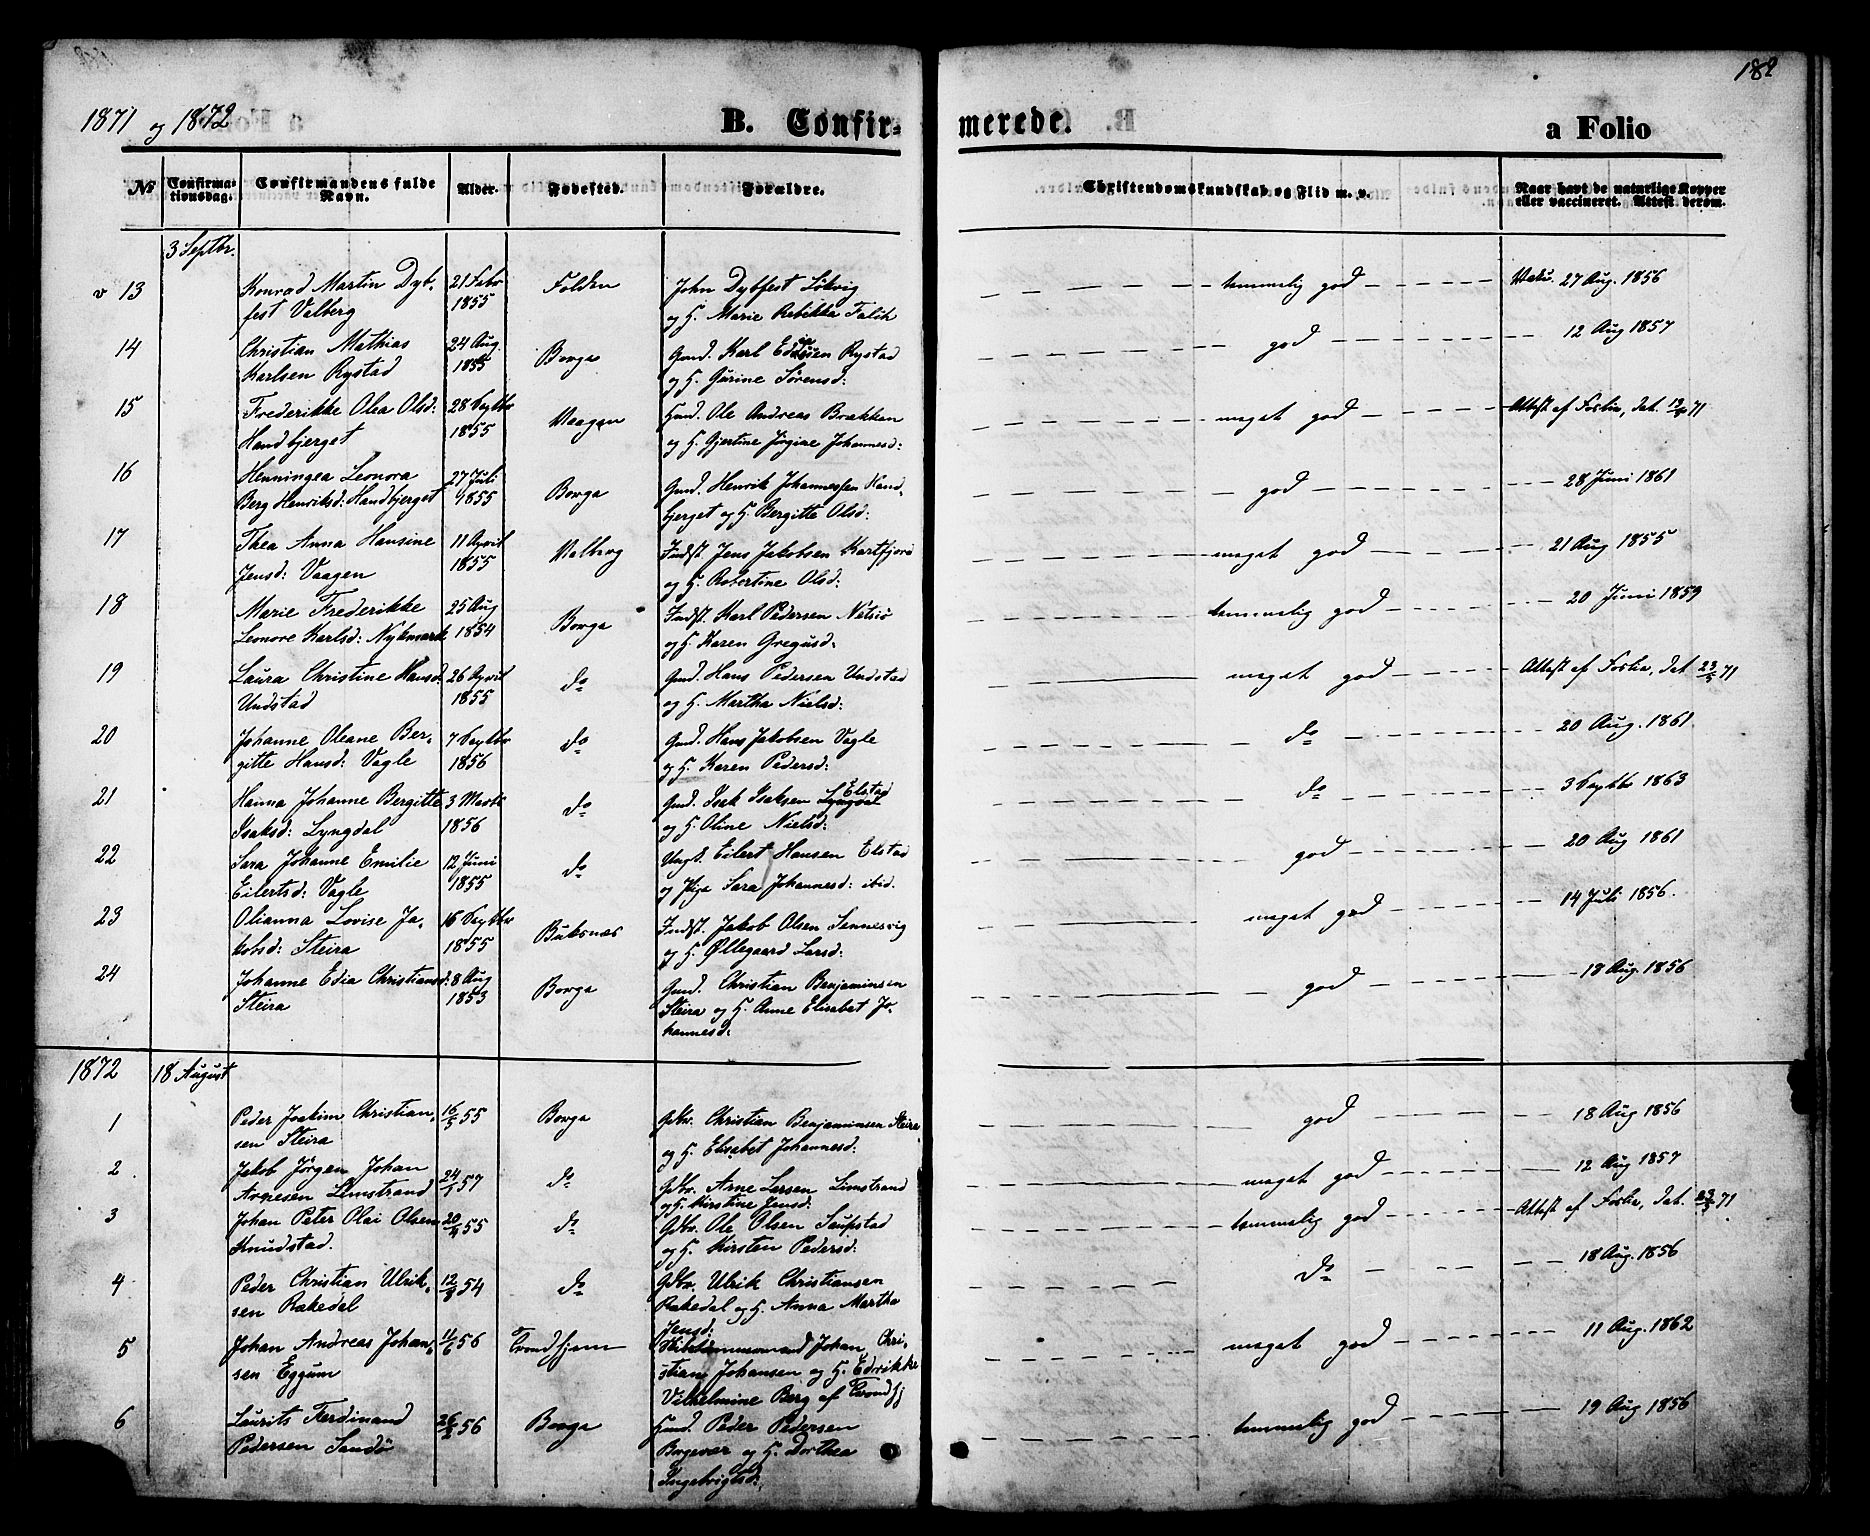 182
1871 og 1872
B. Confirmerede.
a Folio
No
Confirmationsdag.
Confirmandens fulde Navn.
Alder.
Fødested.
Forældre.
Christendomskundskab og Flid m. v.
Naar havt de naturlige Kopper eller vaccineret. Attest derom.
3 Septbr.
13 Konrad Martin Dyb- 21 Febr Folden John Dybfest temmelig god Vakc. 27 Aug. 1856
fest Valberg 1855 og H. Marie Rebikka
14 Christian Mathias 24 Aug Borge Gmd. Karl Rystad god 12 Aug 1857
Karlsen Rystad 1855 og H. Gurine Sörensd:
15 Frederikke Olea Olsd: 28 Septbr Vaagan Hmd. Ole Andreas Brækken meget god Attest af Foshie, dat. 71
Handbjerget 1855 og H. Gjertine Jörgine Johannesd:
16 Henningea Leonora 27 Juli Borge Gmd. Henrik Johannessen Hand- god 28 Juni 1861
Berg Henriksd: Handbjerget 1855 bjerget og H. Bergitte Olsd:
17 Thea Anna Hansine 11 April Valberg Indst. Jens Jakobsen meget god 21 Aug 1855
Jensd: Vaagen 1855 og H. Robertine Olsd:
18 Marie Frederikke 25 Aug Borge Indst. Karl Pedersen temmelig god 20 Juni 1859
Leonore Karlsd: Nykmark 1854 og H. Karen Gregusd.
19 Laura Christine Hansd. 26 April do Gmd. Hans Pedersen Undstad meget god Attest af Foshie, dat 71
Undstad 1855 og H. Martha Nielsd:
20 Johanne Oleane Ber- 7 Septbr do Gmd. Hans Jakobsen Vagle do 20 Aug. 1861
gitte Hansd: Vagle 1856 og H. Karen Pedersd:
21 Hanna Johanne Bergitte 3 Marts do Gmd. Isak Isaksen Lyngdal Elstad do 3 Septbr 1863
Isaksd: Lyngdal 1856 og H. Oline Nielsd:
22 Sara Johanne Emilie 12 Juni do Ungk. Eilert Hansen Elstad god 20 Aug 1861
Eilertsd: Vagle 1855 og Pige Sara Johannesd: ibid.
23 Olianna Lovise Ja- 16 Septbr Buksnæs Indst. Jakob Olsen Sennesvig meget god 14 Juli 1856.
kobsd: Steira 1855 og H. Øllegaard Larsd:
24 Johanne Edia Christiansd: 8 Aug Borge Gmd. Christian Benjaminsen god 18 Aug. 1856
Steira 1853 Steira og H. Anne Elisabet Jo-
hannesd:
1872 18 August
1 Peder Joakim Christian- 16/5 55 Borge Gdbr. Christian Benjaminsen Steira god 18 Aug 1856
sen Steira og H. Elisabet Johannesd:
2 Jakob Jörgen Johan 24/1 57 do Gdbr. Arne Larsen Limstrand meget god 12 Aug 1857
Arnesen Limstrand og H. Kirstine Jensd:
3 Johan Peter Olai Olsen 20/4 55 do Gdbr. Ole Olsen Saupstad temmelig god Attest af Foshie, dat. 71
Knudstad. og H. Kirsten Pedersd:
4 Peder Christian Ulrik- 54 do Gdbr. Ulrik Christiansen do 18 Aug. 1856
sen Rakedal Rakedal og H. Anna Martha
Jensd:
5 Johan Andreas Johan- 11/6 56 Trondhjem Johan Chri- meget god 11 Aug. 1862
sen Eggum stian Johansen og H. Edvikke
Vilhelmine Berg af Trondhj
6 Laurits Ferdinand 56 Borge Hmd. Peder Pedersen temmelig god 19 Aug 1856
Pedersen Sandö Borgevær og H. Dorthea
Ingebrigtsd: